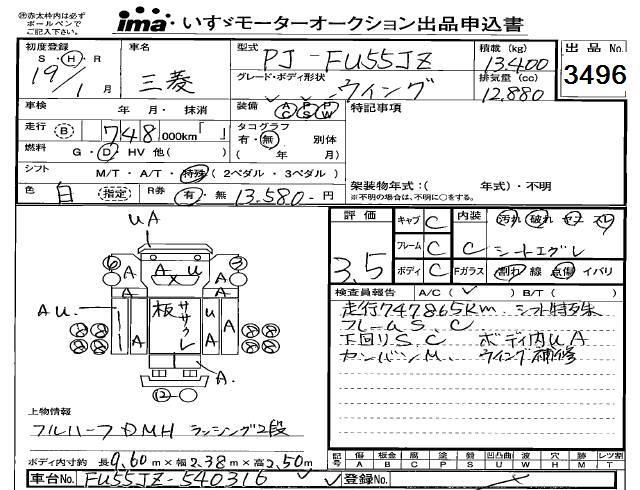 ㊟赤太枠内は必ず
ボールペンで
ご記入下さい。
ima いすゞモーターオークション出品申込書
初度登録 車名 型式 PJ-FU55JZ 積載 (kg) 13,400 出品 No.
S・H・R 19/1 月 三菱 グレード・ボディ形状 ウイング 排気量 (cc) 12,880 3496
車検 年 月・抹消 装備 AC PS PW 特記事項
走行 B 748 000km「 」 タコグラフ 有・無 別体
燃料 G・D・HV 他( ) ( 年 月)
シフト M/T・A/T・特殊 (2ペダル・3ペダル)
架装物年式:( 年式)・不明
色 白 指定 R券 有・無 13,580-円 ※不明の場合は、不明に○をする。
UA
評価 3.5 キャブ C 内装 汚れ 破れ
フレーム C C シートエグレ
ボディ C Fガラス 割れ 線 点傷 イバリ
6 A A X U A 3
A A
AU 板ササクレ U A A A
8 8 8 8
A.
12
検査員報告 A/C( ✓ ) B/T( )
走行747865Km シフト特殊
フレームS.C
下回りS.C ボディ内UA
カンバンM. ウイング補修
上物情報
フルハーフDMH ラッシング2段
ボディ内寸約 長9.60m×幅2.38m×高2.50m
記号 A傷 B板金 C腐食 P塗装 S錆 U凹凸曲 W波 Y穴 H欠 M Tレツ割
車台No. FU55JZ-540316 登録No.